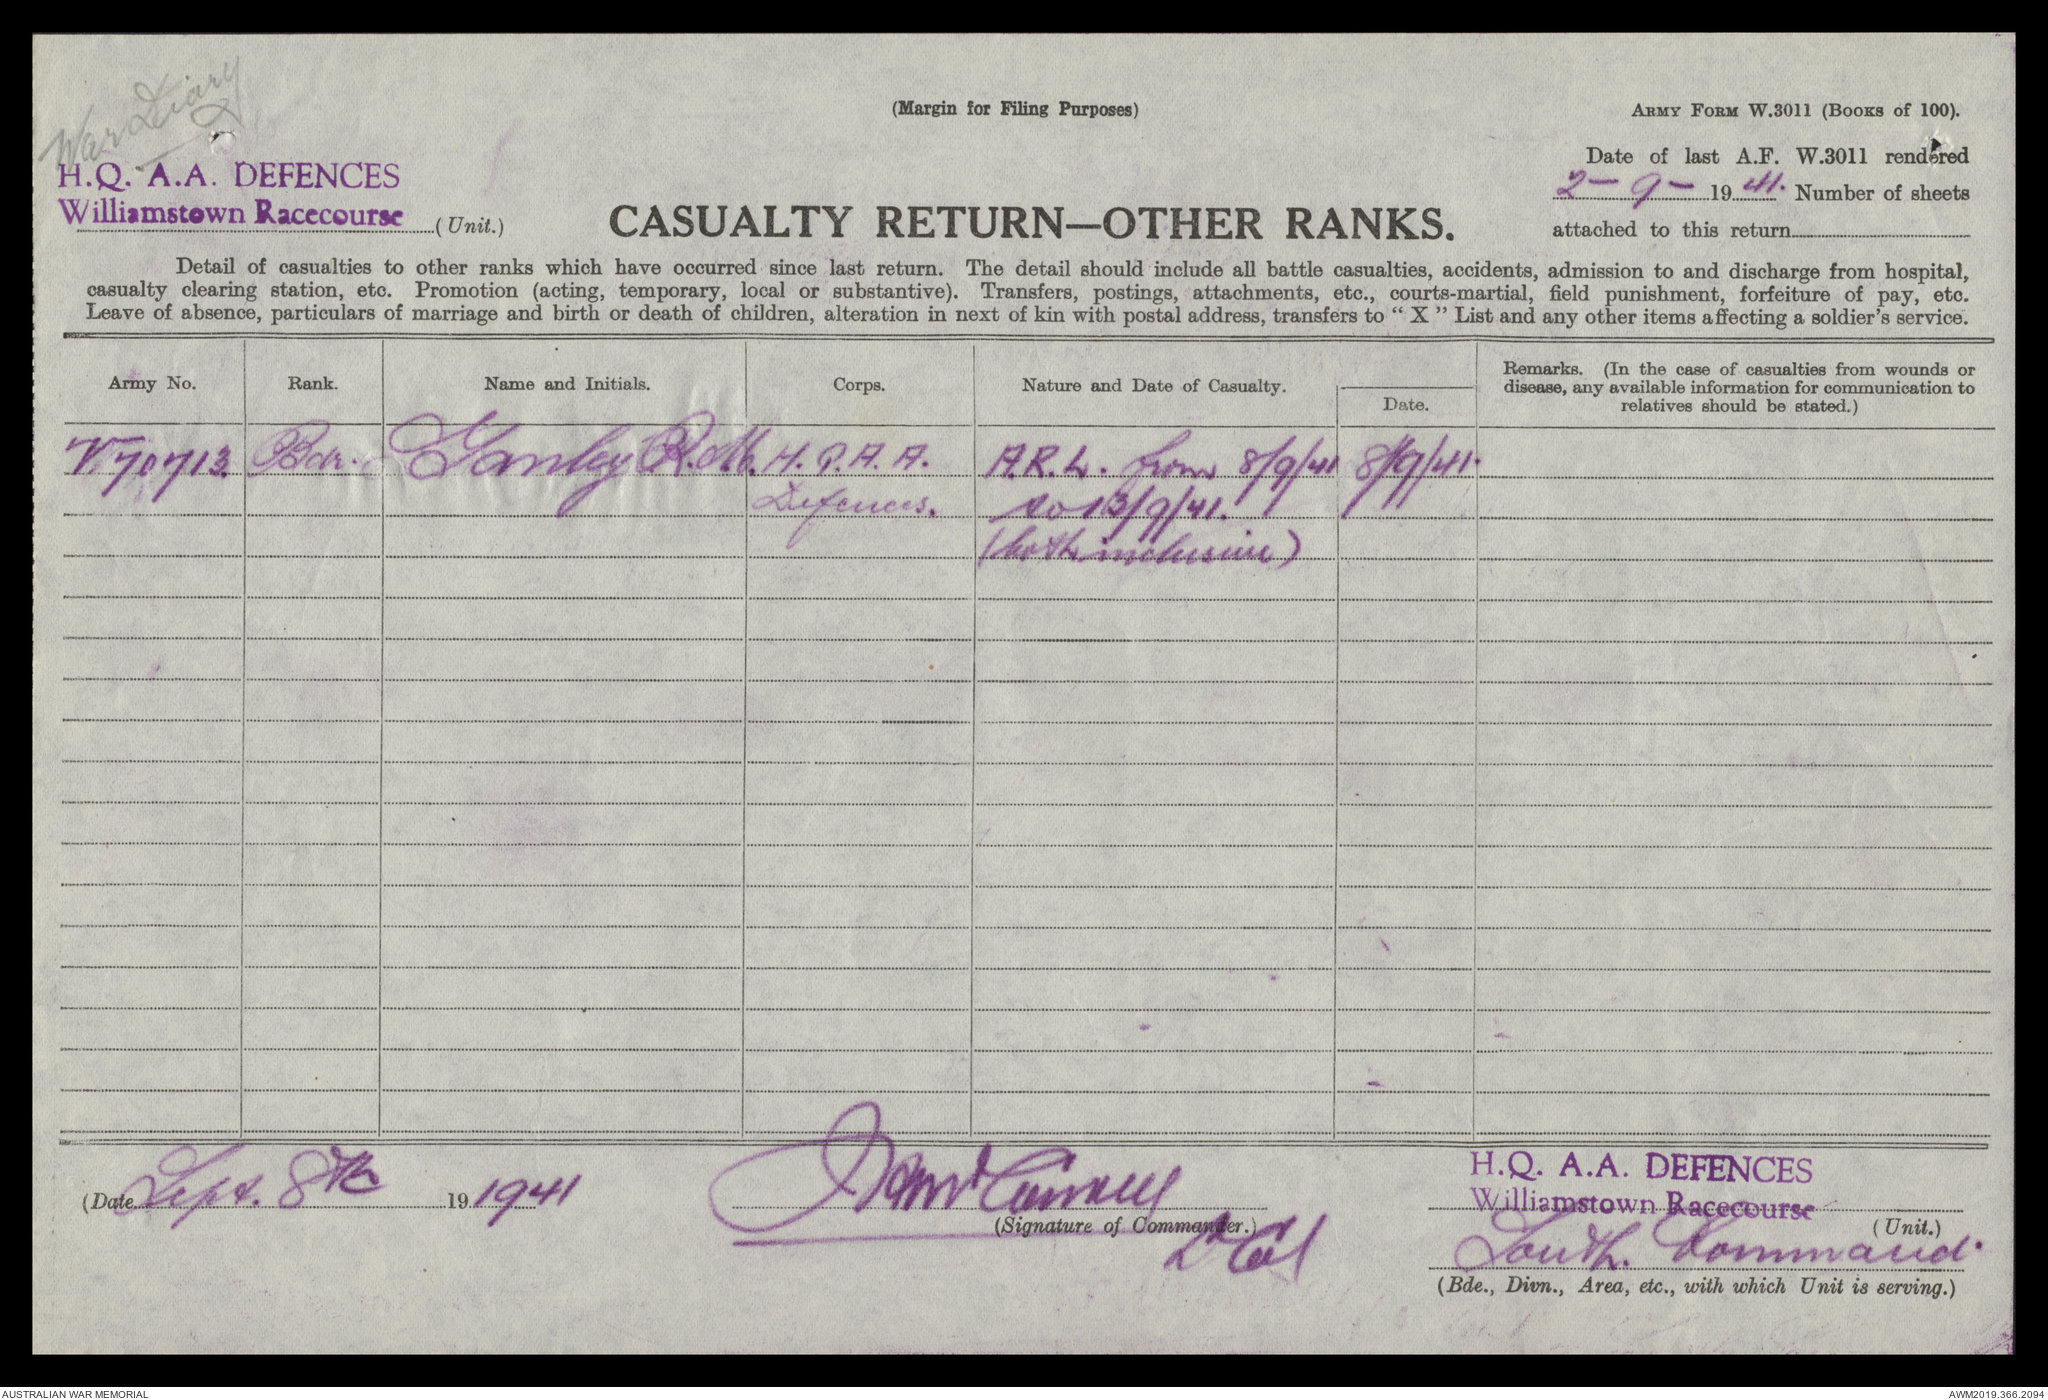 War Diary
(Margin for Filing Purposes)
ARMY FORM W.3011 (BOOKS OF 100).
Date of last A.F. W.3011 rendered
2-9-1941. Number of sheets
attached to this return
H.Q. A.A. DEFENCES
Williamstown Racecourse (Unit.)
CASUALTY RETURN—OTHER RANKS.
Detail of casualties to other ranks which have occurred since last return. The detail should include all battle casualties, accidents, admission to and discharge from hospital,
casualty clearing station, etc. Promotion (acting, temporary, local or substantive). Transfers, postings, attachments, etc., courts-martial, field punishment, forfeiture of pay, etc.
Leave of absence, particulars of marriage and birth or death of children, alteration in next of kin with postal address, transfers to “ X ” List and any other items affecting a soldier's service.
Army No. Rank. Name and Initials. Corps. Nature and Date of Casualty. Date. Remarks. (In the case of casualties from wounds or
disease, any available information for communication to
relatives should be stated.)
V70713 Bdr. Ganley R. H.Q. A.A. A.R.L. from 8/9/41 8/9/41.
Defences. to 13/9/41.
(both inclusive)
(Date Sept. 8th 19 1941
(Signature of Commander.)
H.Q. A.A. DEFENCES
Williamstown Racecourse
(Unit.)
South. Command.
(Bde., Divn., Area, etc., with which Unit is serving.)
AUSTRALIAN WAR MEMORIAL
AWM2019.366.2094